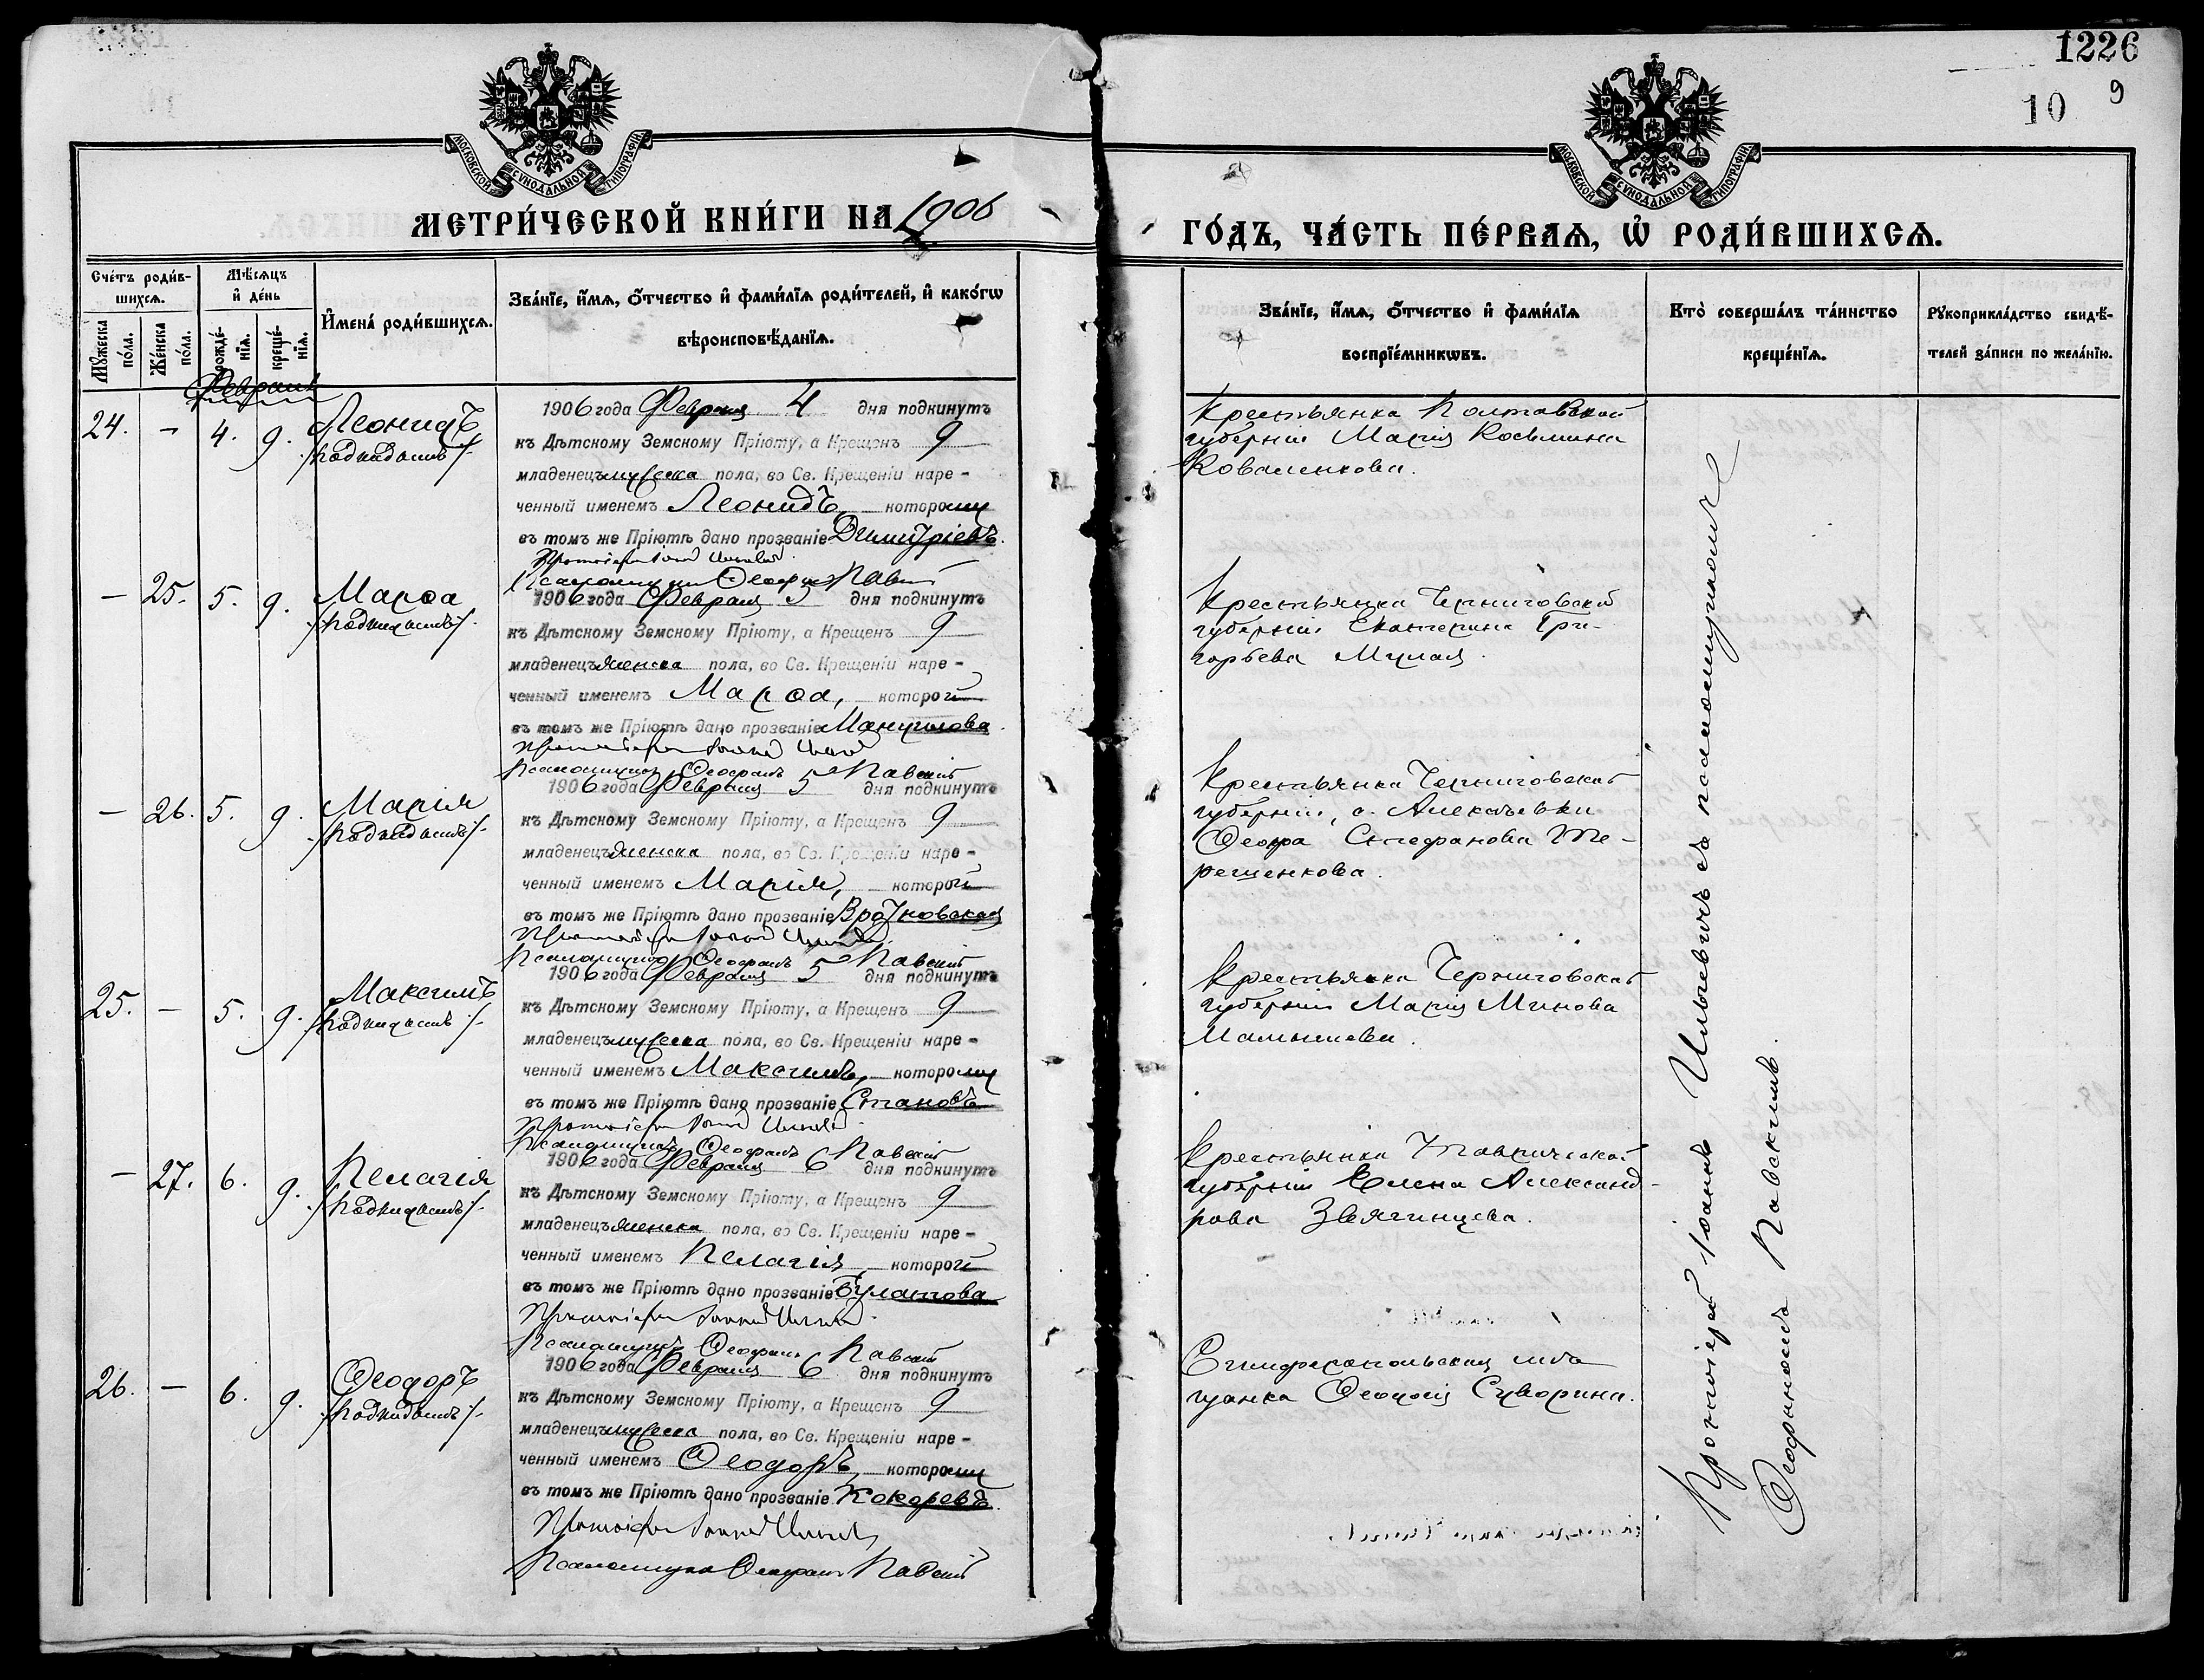 1226
10 9
МОСКОВСКОЙ СѴНОДАЛЬНОЙ ТИПОГРАФІИ
МОСКОВСКОЙ СѴНОДАЛЬНОЙ ТИПОГРАФІИ
МЕТРИ́ЧЕСКОЙ КНИ́ГИ НА 1906
ГО́ДЪ, ЧА́СТЬ ПЕ́РВАѦ, Ѡ РОДИ́ВШИХСѦ.
Сче́тъ роди́в-
шихсѧ.
Мꙋ́жеска по́ла.
Же́нска по́ла.
Мѣ́сѧцъ
и҆ де́нь
рожде́-
нїѧ.
креще́-
нїѧ.
И҆мена́ роди́вшихсѧ.
Зва́нїе, и҆́мѧ, ѻ҆́тчество и҆ фами́лїѧ роди́телей, и҆ како́гѡ
вѣроисповѣ́данїѧ.
Зва́нїе, и҆́мѧ, ѻ҆́тчество и҆ фами́лїѧ
воспрїе́мникѡвъ.
Кто̀ соверша́лъ та́инство
креще́нїѧ.
Рꙋкоприкла́дство свидѣ́-
телей за́писи по жела́нїю.
Февраль
24. – 4. 9. Леонидъ
/подкидышъ/.
1906 года Февраля 4 дня подкинутъ
къ Дѣтскому Земскому Пріюту, а Крещенъ 9
младенецъ мужеска пола, во Св. Крещеніи наре-
ченный именемъ Леонидъ, которому
въ томъ же Пріютѣ дано прозваніе Димитріевъ.
Протоіерей Іоаннъ
Псаломщикъ Ѳеофанъ Павскій
Крестьянка Полтавской
губерніи Марія Косьмина
Коваленкова.
– 25. 5. 9. Марѳа
/подкидышъ/.
1906 года Февраля 5 дня подкинутъ
къ Дѣтскому Земскому Пріюту, а Крещенъ 9
младенецъ женска пола, во Св. Крещеніи наре-
ченный именемъ Марѳа, которой
въ томъ же Пріютѣ дано прозваніе Мануилова.
Протоіерей Іоаннъ
Псаломщикъ Ѳеофанъ Павскій
Крестьянка Черниговской
губерніи Екатерина Гри-
горьева
– 26. 5. 9. Марія
/подкидышъ/.
1906 года Февраля 5 дня подкинутъ
къ Дѣтскому Земскому Пріюту, а Крещенъ 9
младенецъ женска пола, во Св. Крещеніи наре-
ченный именемъ Марія, которой
въ томъ же Пріютѣ дано прозваніе
Протоіерей Іоаннъ
Псаломщикъ Ѳеофанъ Павскій
Крестьянка Черниговской
губерніи, с. Алексѣевки
Стефанова Те-
рещенкова.
25. – 5. 9. Максимъ
/подкидышъ/.
1906 года Февраля 5 дня подкинутъ
къ Дѣтскому Земскому Пріюту, а Крещенъ 9
младенецъ мужеска пола, во Св. Крещеніи наре-
ченный именемъ Максимъ, которому
въ томъ же Пріютѣ дано прозваніе Становъ
Протоіерей Іоаннъ
Псаломщикъ Ѳеофанъ Павскій
Крестьянка Черниговской
губерніи Марія Минова
– 27. 6. 9. Пелагія
/подкидышъ/.
1906 года Февраля 6 дня подкинутъ
къ Дѣтскому Земскому Пріюту, а Крещенъ 9
младенецъ женска пола, во Св. Крещеніи наре-
ченный именемъ Пелагія, которой
въ томъ же Пріютѣ дано прозваніе Булатова
Протоіерей Іоаннъ
Псаломщикъ Ѳеофанъ Павскій
Крестьянка Таврической
губерніи Елена Александ-
рова Звягинцева.
26. – 6. 9. Ѳеодоръ
/подкидышъ/.
1906 года Февраля 6 дня подкинутъ
къ Дѣтскому Земскому Пріюту, а Крещенъ 9
младенецъ мужеска пола, во Св. Крещеніи наре-
ченный именемъ Ѳеодоръ, которому
въ томъ же Пріютѣ дано прозваніе Кокоревъ.
Протоіерей Іоаннъ
Псаломщикъ Ѳеофанъ Павскій
Симферопольская мѣ-
щанка Ѳеодосія Суворина.
Протоіерей Іоаннъ съ псаломщикомъ
Ѳеофаномъ Павскимъ.